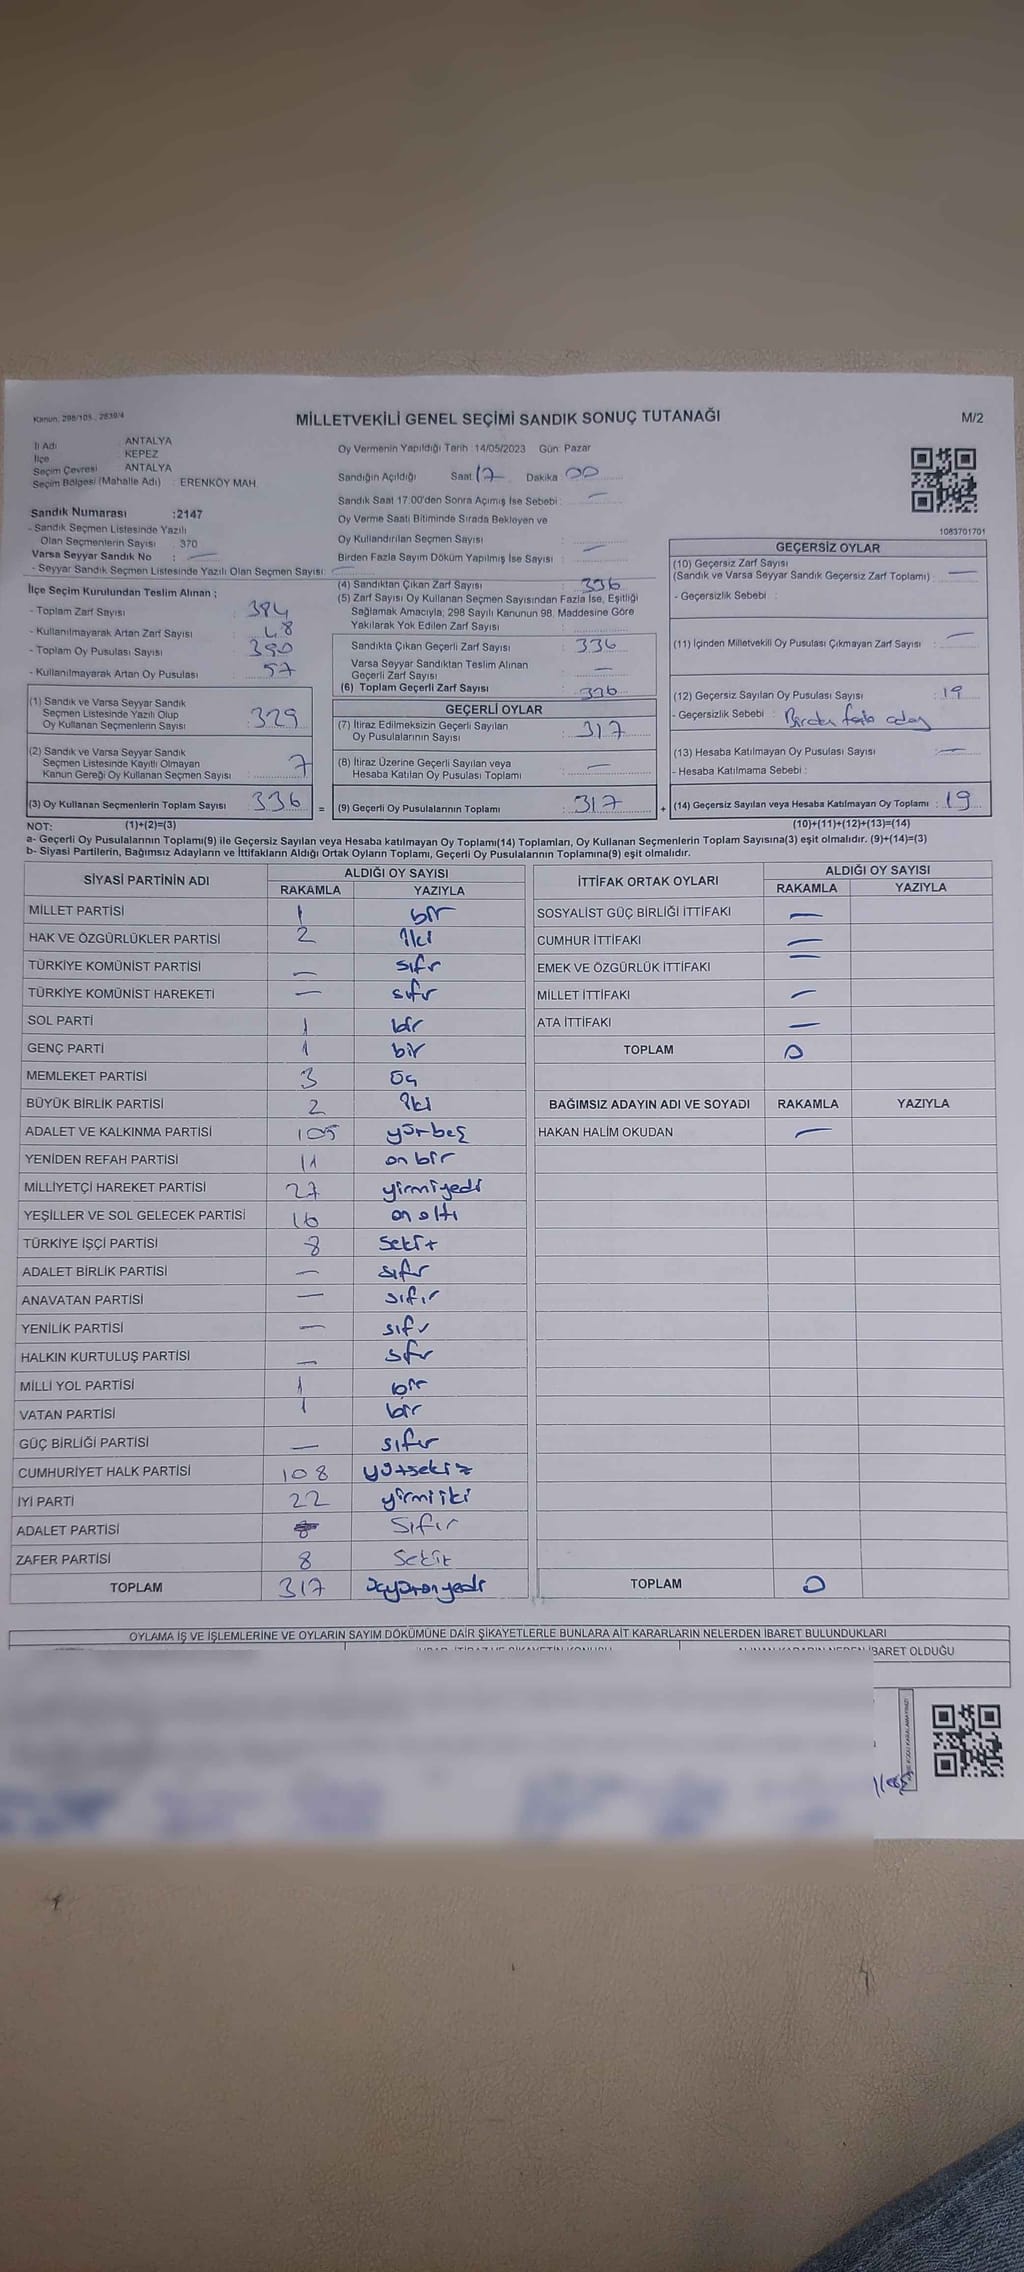 Kanun, 298/105, 2839/4
MİLLETVEKİLİ GENEL SEÇİMİ SANDIK SONUÇ TUTANAĞI
M/2
İl Adı ANTALYA
İlçe KEPEZ
Seçim Çevresi ANTALYA
Seçim Bölgesi (Mahalle Adı) : ERENKÖY MAH.
Sandık Numarası :2147
- Sandık Seçmen Listesinde Yazılı
Olan Seçmenlerin Sayısı : 370
Varsa Seyyar Sandık No : —
- Seyyar Sandık Seçmen Listesinde Yazılı Olan Seçmen Sayısı: —
Oy Vermenin Yapıldığı Tarih :14/05/2023 Gün: Pazar
Sandığın Açıldığı Saat 17 Dakika 00
Sandık Saat 17:00'den Sonra Açımış İse Sebebi : —
Oy Verme Saati Bitiminde Sırada Bekleyen ve
Oy Kullandırılan Seçmen Sayısı :
Birden Fazla Sayım Döküm Yapılmış İse Sayısı : —
1083701701
İlçe Seçim Kurulundan Teslim Alınan ;
- Toplam Zarf Sayısı : 384
- Kullanılmayarak Artan Zarf Sayısı : 48
- Toplam Oy Pusulası Sayısı : 390
- Kullanılmayarak Artan Oy Pusulası : 57
(1) Sandık ve Varsa Seyyar Sandık
Seçmen Listesinde Yazılı Olup
Oy Kullanan Seçmenlerin Sayısı : 329
(2) Sandık ve Varsa Seyyar Sandık
Seçmen Listesinde Kayıtlı Olmayan
Kanun Gereği Oy Kullanan Seçmen Sayısı : 7
(3) Oy Kullanan Seçmenlerin Toplam Sayısı : 336
(1)+(2)=(3)
(4) Sandıktan Çıkan Zarf Sayısı : 336
(5) Zarf Sayısı Oy Kullanan Seçmen Sayısından Fazla İse, Eşitliği
Sağlamak Amacıyla; 298 Sayılı Kanunun 98. Maddesine Göre
Yakılarak Yok Edilen Zarf Sayısı :
Sandıkta Çıkan Geçerli Zarf Sayısı : 336
Varsa Seyyar Sandıktan Teslim Alınan
Geçerli Zarf Sayısı : —
(6) Toplam Geçerli Zarf Sayısı : 336
GEÇERLİ OYLAR
(7) İtiraz Edilmeksizin Geçerli Sayılan
Oy Pusulalarının Sayısı : 317
(8) İtiraz Üzerine Geçerli Sayılan veya
Hesaba Katılan Oy Pusulası Toplamı : —
= (9) Geçerli Oy Pusulalarının Toplamı : 317
GEÇERSİZ OYLAR
(10) Geçersiz Zarf Sayısı
(Sandık ve Varsa Seyyar Sandık Geçersiz Zarf Toplamı) : —
- Geçersizlik Sebebi :
(11) İçinden Milletvekili Oy Pusulası Çıkmayan Zarf Sayısı : —
(12) Geçersiz Sayılan Oy Pusulası Sayısı : 19
- Geçersizlik Sebebi : Birden fazla aday
(13) Hesaba Katılmayan Oy Pusulası Sayısı : —
- Hesaba Katılmama Sebebi :
+ (14) Geçersiz Sayılan veya Hesaba Katılmayan Oy Toplamı : 19
(10)+(11)+(12)+(13)=(14)
NOT:
a- Geçerli Oy Pusulalarının Toplamı(9) ile Geçersiz Sayılan veya Hesaba katılmayan Oy Toplamı(14) Toplamları, Oy Kullanan Seçmenlerin Toplam Sayısına(3) eşit olmalıdır. (9)+(14)=(3)
b- Siyasi Partilerin, Bağımsız Adayların ve İttifakların Aldığı Ortak Oyların Toplamı, Geçerli Oy Pusulalarının Toplamına(9) eşit olmalıdır.
SİYASİ PARTİNİN ADI
ALDIĞI OY SAYISI
RAKAMLA YAZIYLA
MİLLET PARTİSİ 1 bir
HAK VE ÖZGÜRLÜKLER PARTİSİ 2 iki
TÜRKİYE KOMÜNİST PARTİSİ — sıfır
TÜRKİYE KOMÜNİST HAREKETİ — sıfır
SOL PARTİ 1 bir
GENÇ PARTİ 1 bir
MEMLEKET PARTİSİ 3 üç
BÜYÜK BİRLİK PARTİSİ 2 iki
ADALET VE KALKINMA PARTİSİ 105 yüzbeş
YENİDEN REFAH PARTİSİ 11 on bir
MİLLİYETÇİ HAREKET PARTİSİ 27 yirmiyedi
YEŞİLLER VE SOL GELECEK PARTİSİ 16 on altı
TÜRKİYE İŞÇİ PARTİSİ 8 sekiz
ADALET BİRLİK PARTİSİ — sıfır
ANAVATAN PARTİSİ — sıfır
YENİLİK PARTİSİ — sıfır
HALKIN KURTULUŞ PARTİSİ — sıfır
MİLLİ YOL PARTİSİ 1 bir
VATAN PARTİSİ 1 bir
GÜÇ BİRLİĞİ PARTİSİ — sıfır
CUMHURİYET HALK PARTİSİ 108 yüzsekiz
İYİ PARTİ 22 yirmiiki
ADALET PARTİSİ Sıfır
ZAFER PARTİSİ 8 Sekiz
TOPLAM 317 üçyüzonyedi
İTTİFAK ORTAK OYLARI
ALDIĞI OY SAYISI
RAKAMLA YAZIYLA
SOSYALİST GÜÇ BİRLİĞİ İTTİFAKI —
CUMHUR İTTİFAKI —
EMEK VE ÖZGÜRLÜK İTTİFAKI —
MİLLET İTTİFAKI —
ATA İTTİFAKI —
TOPLAM 0
BAĞIMSIZ ADAYIN ADI VE SOYADI RAKAMLA YAZIYLA
HAKAN HALİM OKUDAN —
TOPLAM 0
OYLAMA İŞ VE İŞLEMLERİNE VE OYLARIN SAYIM DÖKÜMÜNE DAİR ŞİKAYETLERLE BUNLARA AİT KARARLARIN NELERDEN İBARET BULUNDUKLARI
İBARET OLDUĞU